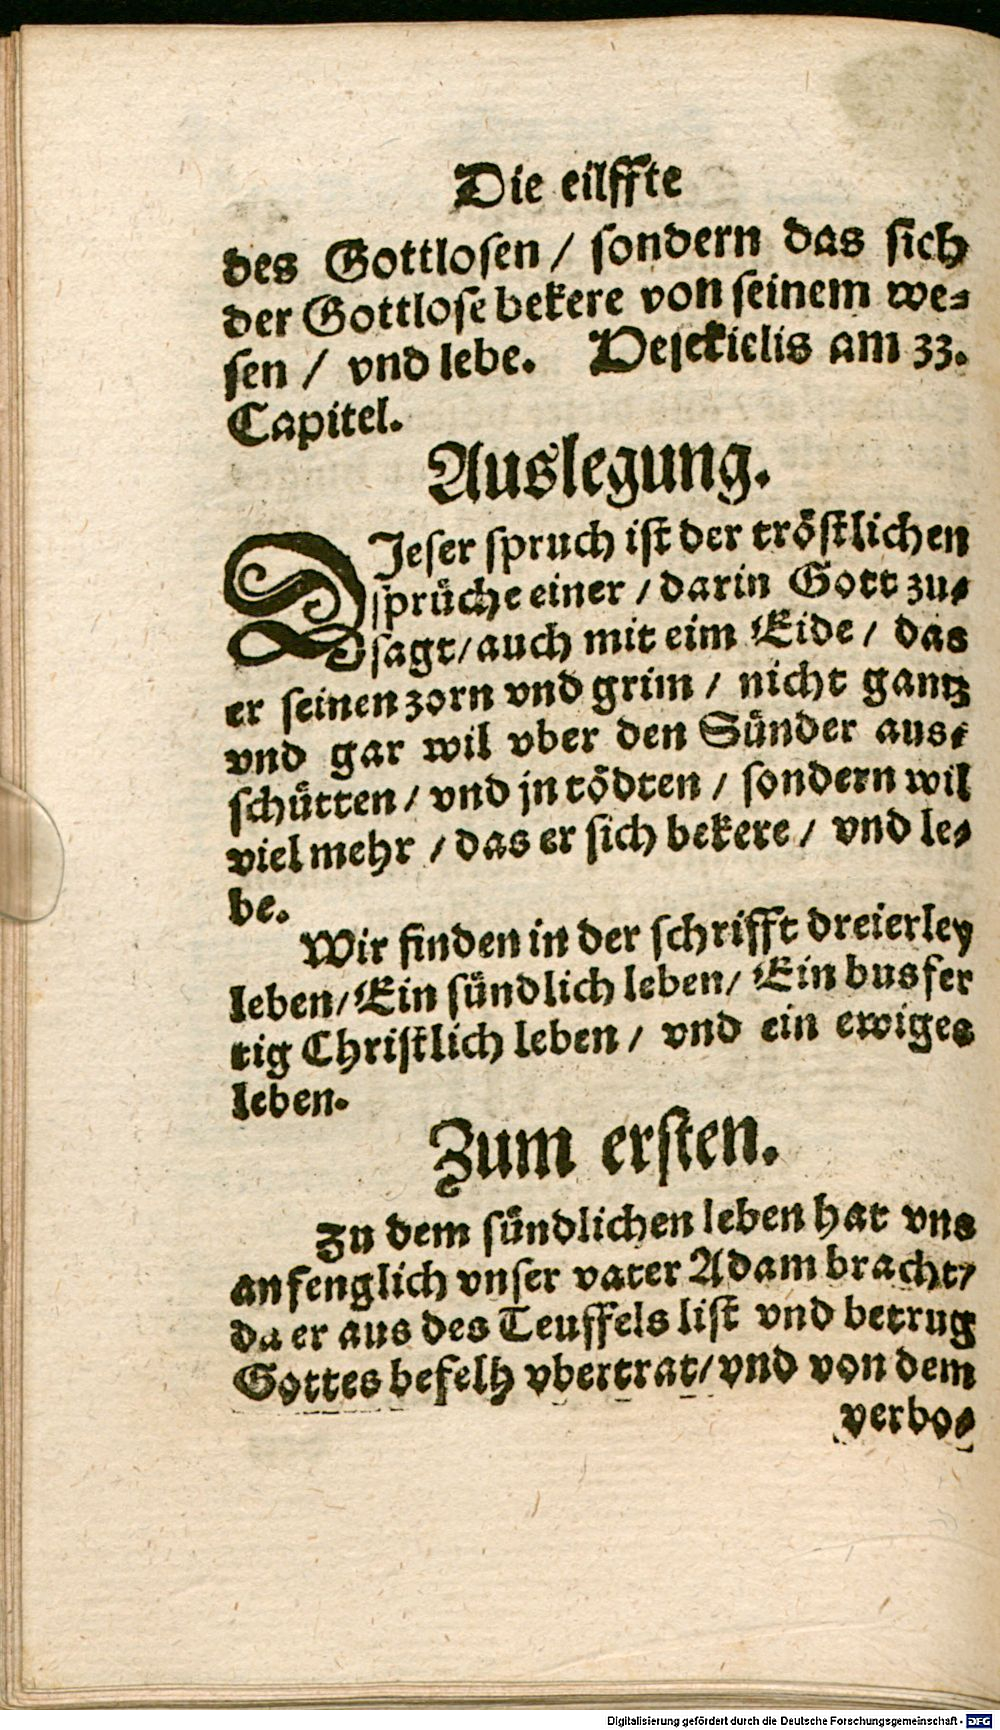 Die eilffte
des Gottlosen / sondern das sich
der Gottlose bekere von seinem we⸗
sen / vnd lebe. Hesekielis am 33.
Capitel.
Auslegung.
DJeser spruch ist der tröstlichen
sprüche einer / darin Gott zu⸗
sagt / auch mit eim Eide / das
er seinen zorn vnd grim / nicht gantz
vnd gar wil vber den Sünder aus⸗
schütten / vnd jn tödten / sondern wil
viel mehr / das er sich bekere / vnd le⸗
be.
Wir finden in der schrifft dreierley
leben / Ein sündlich leben / Ein busfer
tig Christlich leben / vnd ein ewiges
leben.
Zum ersten.
Zu dem sündlichen leben hat vns
anfenglich vnser vater Adam bracht /
da er aus des Teuffels list vnd betrug
Gottes befelh vbertrat / vnd von dem
verbo⸗
Digitalisierung gefördert durch die Deutsche Forschungsgemeinschaft - DFG